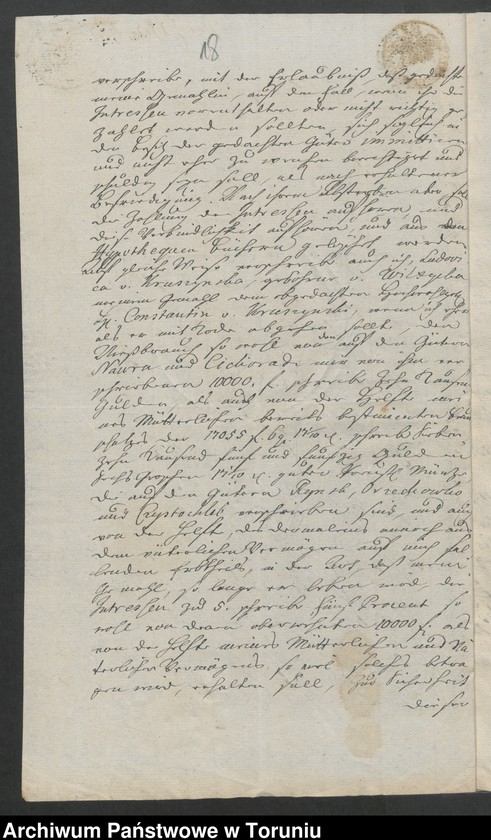 18
verschreibe, mit der Erlaubniß, daß gedachte
meine Gemahlin, auf den Fall, wenn ihr die
Intressen vorenthalten oder nicht richtig ge
zahlet werden sollten, sich sogleich in
den Besitz der gedachten Güter immittiren
und nicht eher zu weichen berechtiget und
schuldig seyn soll, als nach erhaltener
Befriedigung. Nach ihrem Absterben aber soll
die Zahlung der Intressen aufhören und
diese Verbindlichkeit aufhören, und aus den
Hypothequen Büchern gelöscht werden
auf gleiche Weise verschreibe auch ich, Ludovi
ca v. Kruszynska, gebohrne v. Wilxycka
meinem Gemahl dem obgedachten
H. Constantin v. Kruszynski, wenn ich eher
als er mit Tode abgehen sollte, den
Nießbrauch so wohl von den auf den Gütern
Nawra und Cichoradz mir von ihm ver
schriebenen 10000 f. schreibe Zehn Tausend
Gulden als auch von der Helfte mei
nes Mütterlichen bereits bestimmten Braut
schatzes der 17055 f. 6 g. schreibe Sieben
zehn Tausend fünf und funfzig Gulden
Sechs Groschen guter Preuß. Müntze
die auf den Gütern Rynsk, Orzechowko
und Przystochleb verschrieben sind und auch
von der Helfte, des dermaleins annoch aus
dem väterlichen Vermögen auf mich fal
lenden Erbtheils, in der Art, daß mein
Gemahl, so lange er leben wird, die
Intressen zu 5. schreibe fünf Procent so
wohl von denen oberwehnten 10000 f. als
von der Helfte meines Mütterlichen und Vä
terlichen Vermögens, so viel solches betra
gen wird, erhalten soll, zur Sicherheit
dieser
Archiwum Państwowe w Toruniu